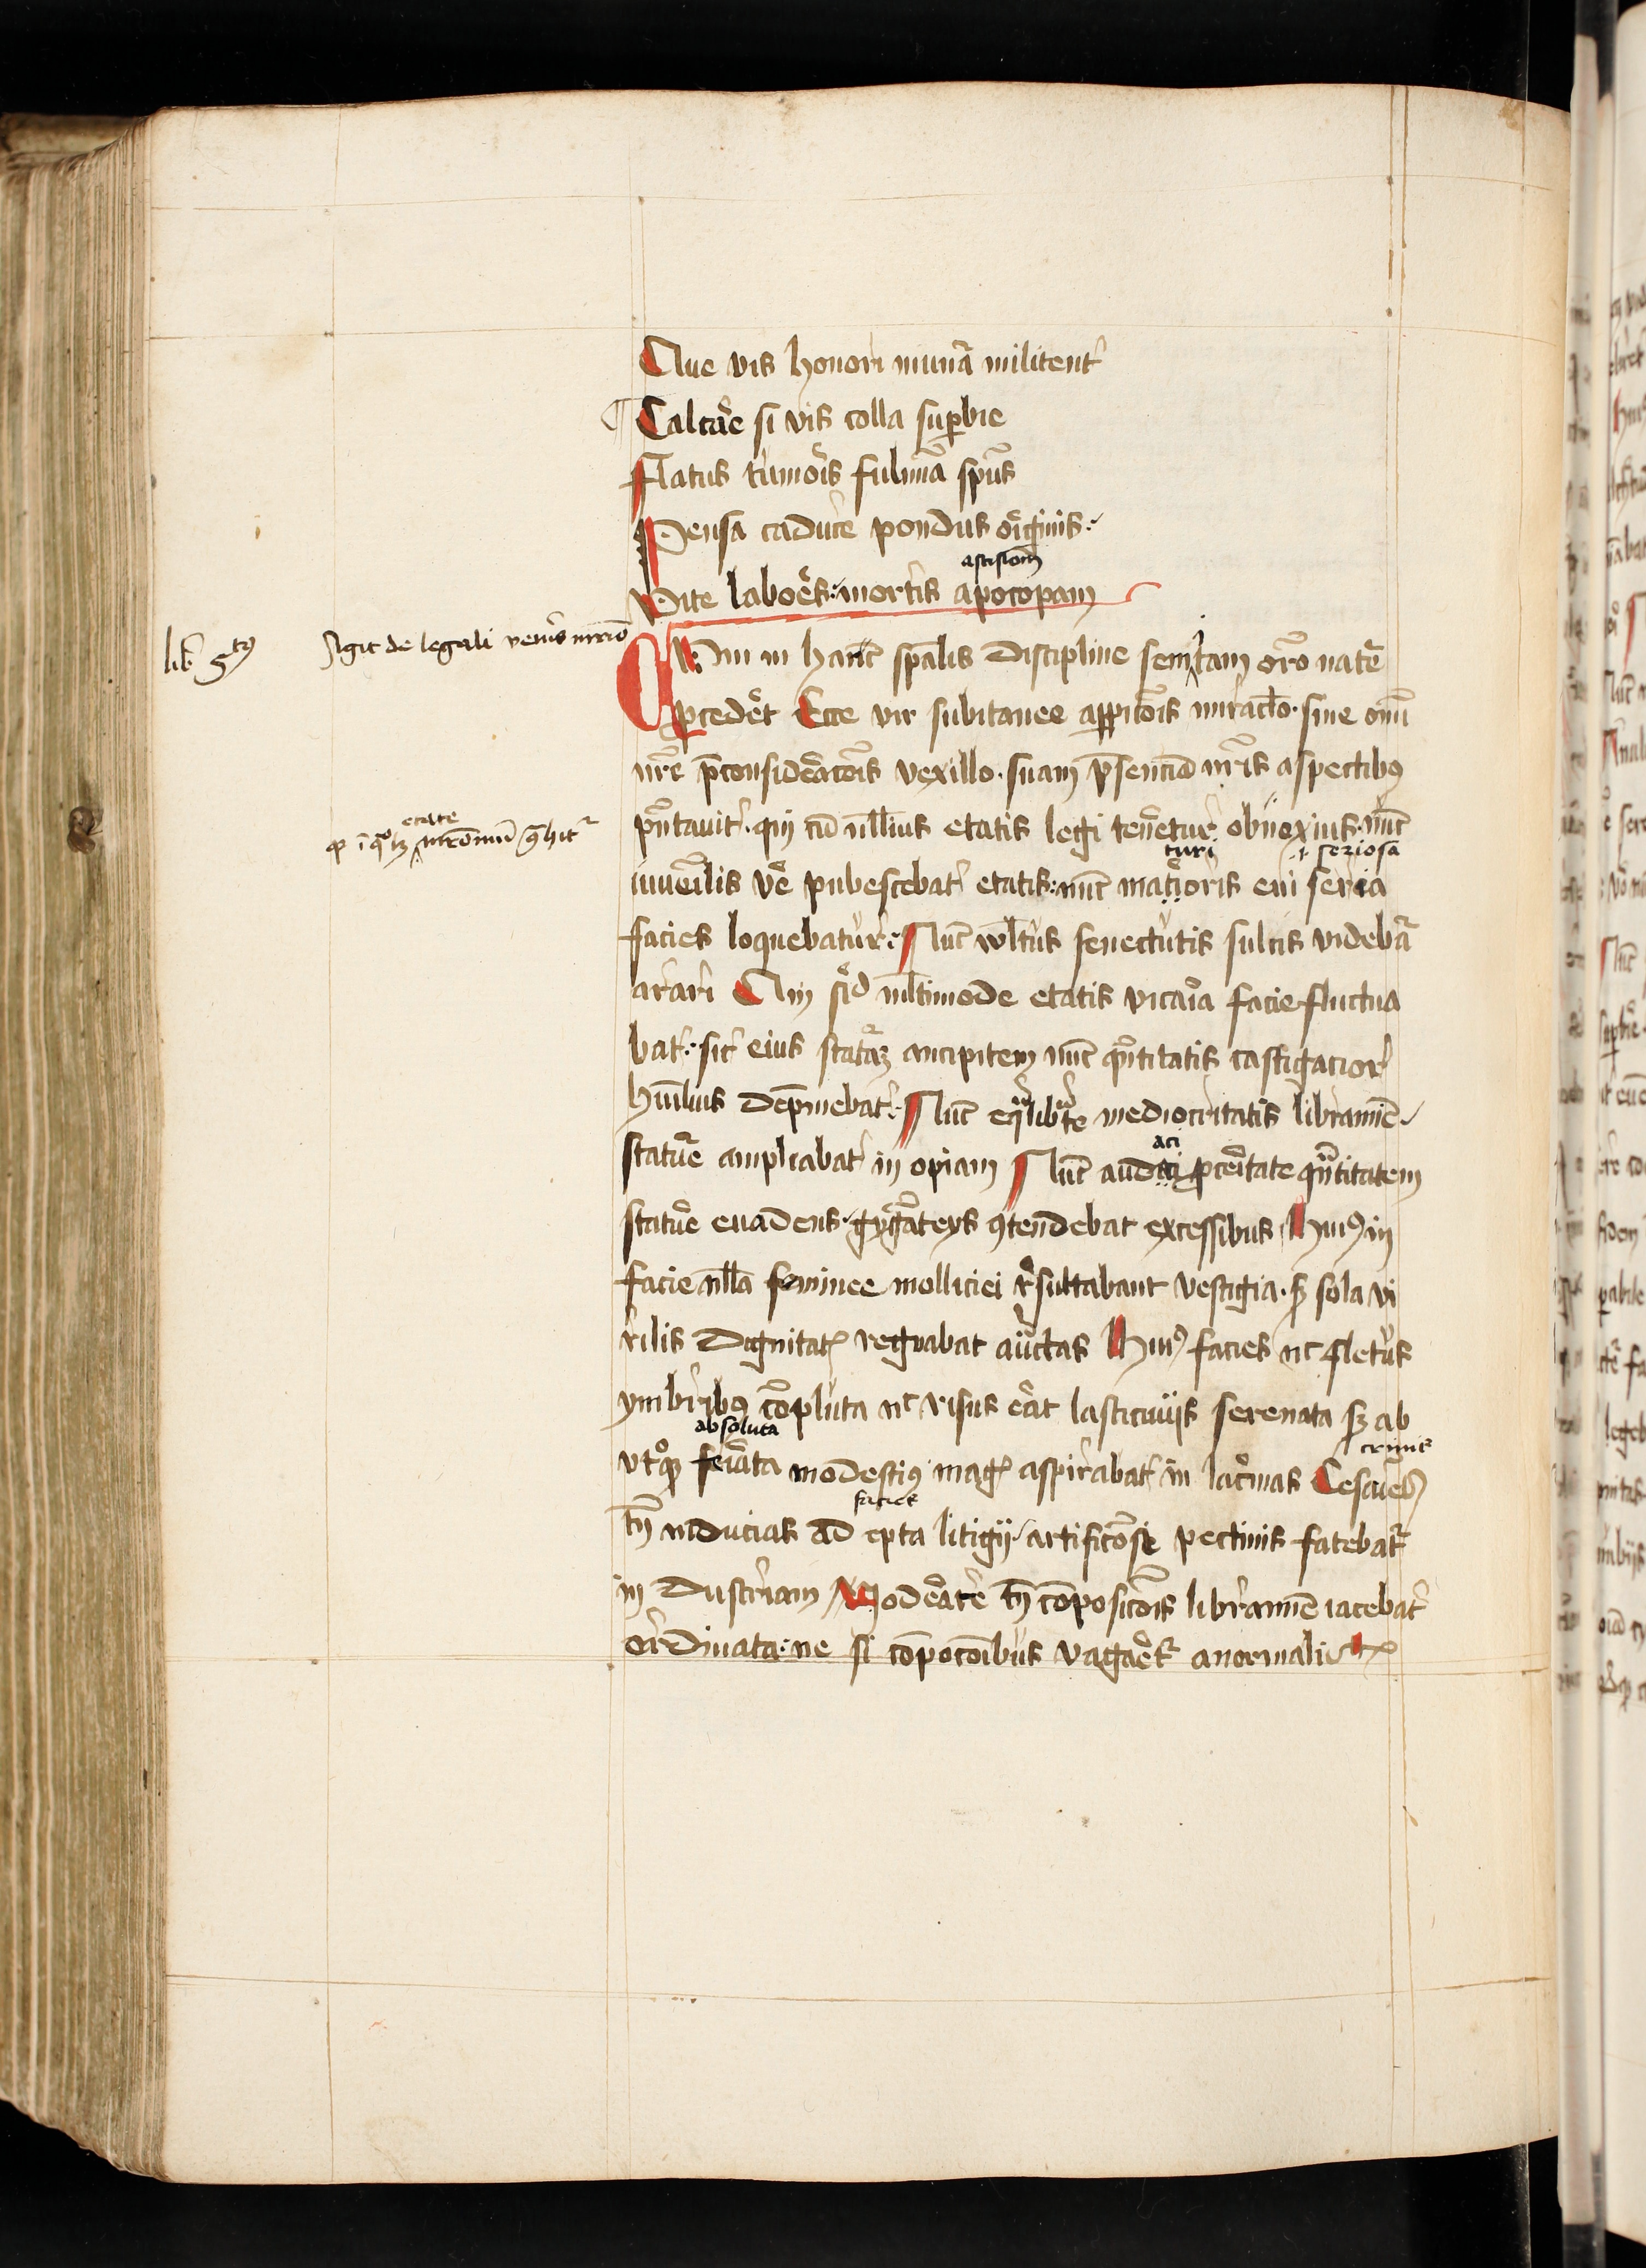 Que vis honori munera militent
Calcare si vis colla superbie
Flatus tumoris fulmina spiritus
Pensa caduce pondus originis
ascisionem
Vite labores mortis apocopam
lib 5tus
Agit de legali veneris matrimonio
Cum in hanc specialis discipline semitam oratio nature
procederet Ecce vir subitanee apparicionis miraculo sine omni
nostre preconsideracionis vexillo suam presenciam nostris aspectibus
etate
presentavit qui cum nullius etatis legi teneretur obnoxius nunc
turi
seriosa
iuvenilis vere pubescebat etatis nunc maturioris evi seria
facies loquebatur Nunc vultus senectutis sulcis videbatur
arari Qui sicud multimode etatis vicaria facie fluctua
bat sic eius staturam ancipitem nunc quantitatis castigacior
humilius deprimebat Nunc equilibrate mediocritatis libramine
aci
stature ampliabat in opiam Nunc audaci proceritate quantitatem
stature evadens gyganteys contendebat excessibus Huius in
facie nulla feminee molliciei resultabant vestigia sed sola vi
rilis dignitatis regnabat auctoritas Huius facies nec fletus
ymbribus compluta nec risus erat lasciviis serenata sed ab
absoluta
crinis
utroque feriata modestius magis aspirabat in lacrimas Cesaries
facies
tamen inducias ad epta litigii artificiose pectinis fatebatur
in dustriam Moderate tamen composicionis libramine iacebat
ordinata ne si compcionibus vagaretur anormalibus